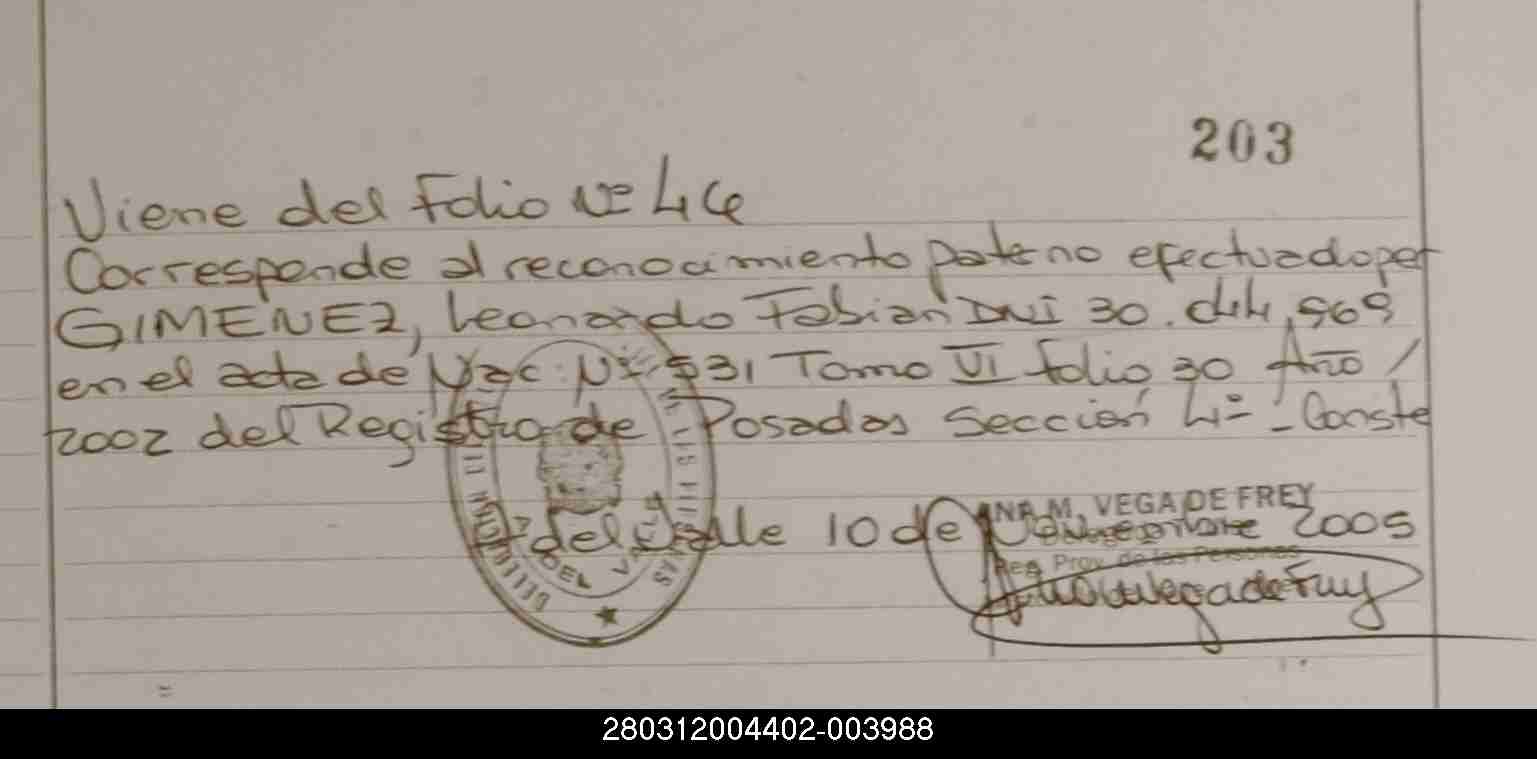 203
Viene del Folio Nº 46
Corresponde al reconocimiento paterno efectuado por
GIMENEZ, Leonardo Fabian DNI 30. 969
en el acta de Nac. Nº 531 Tomo VI folio 30 Año /
2002 del Registro de Posadas Sección 4º - Conste
del Valle 10 de Noviembre 2005
ANA M. VEGA DE FREY
Reg. Prov. de las Personas
280312004402-003988